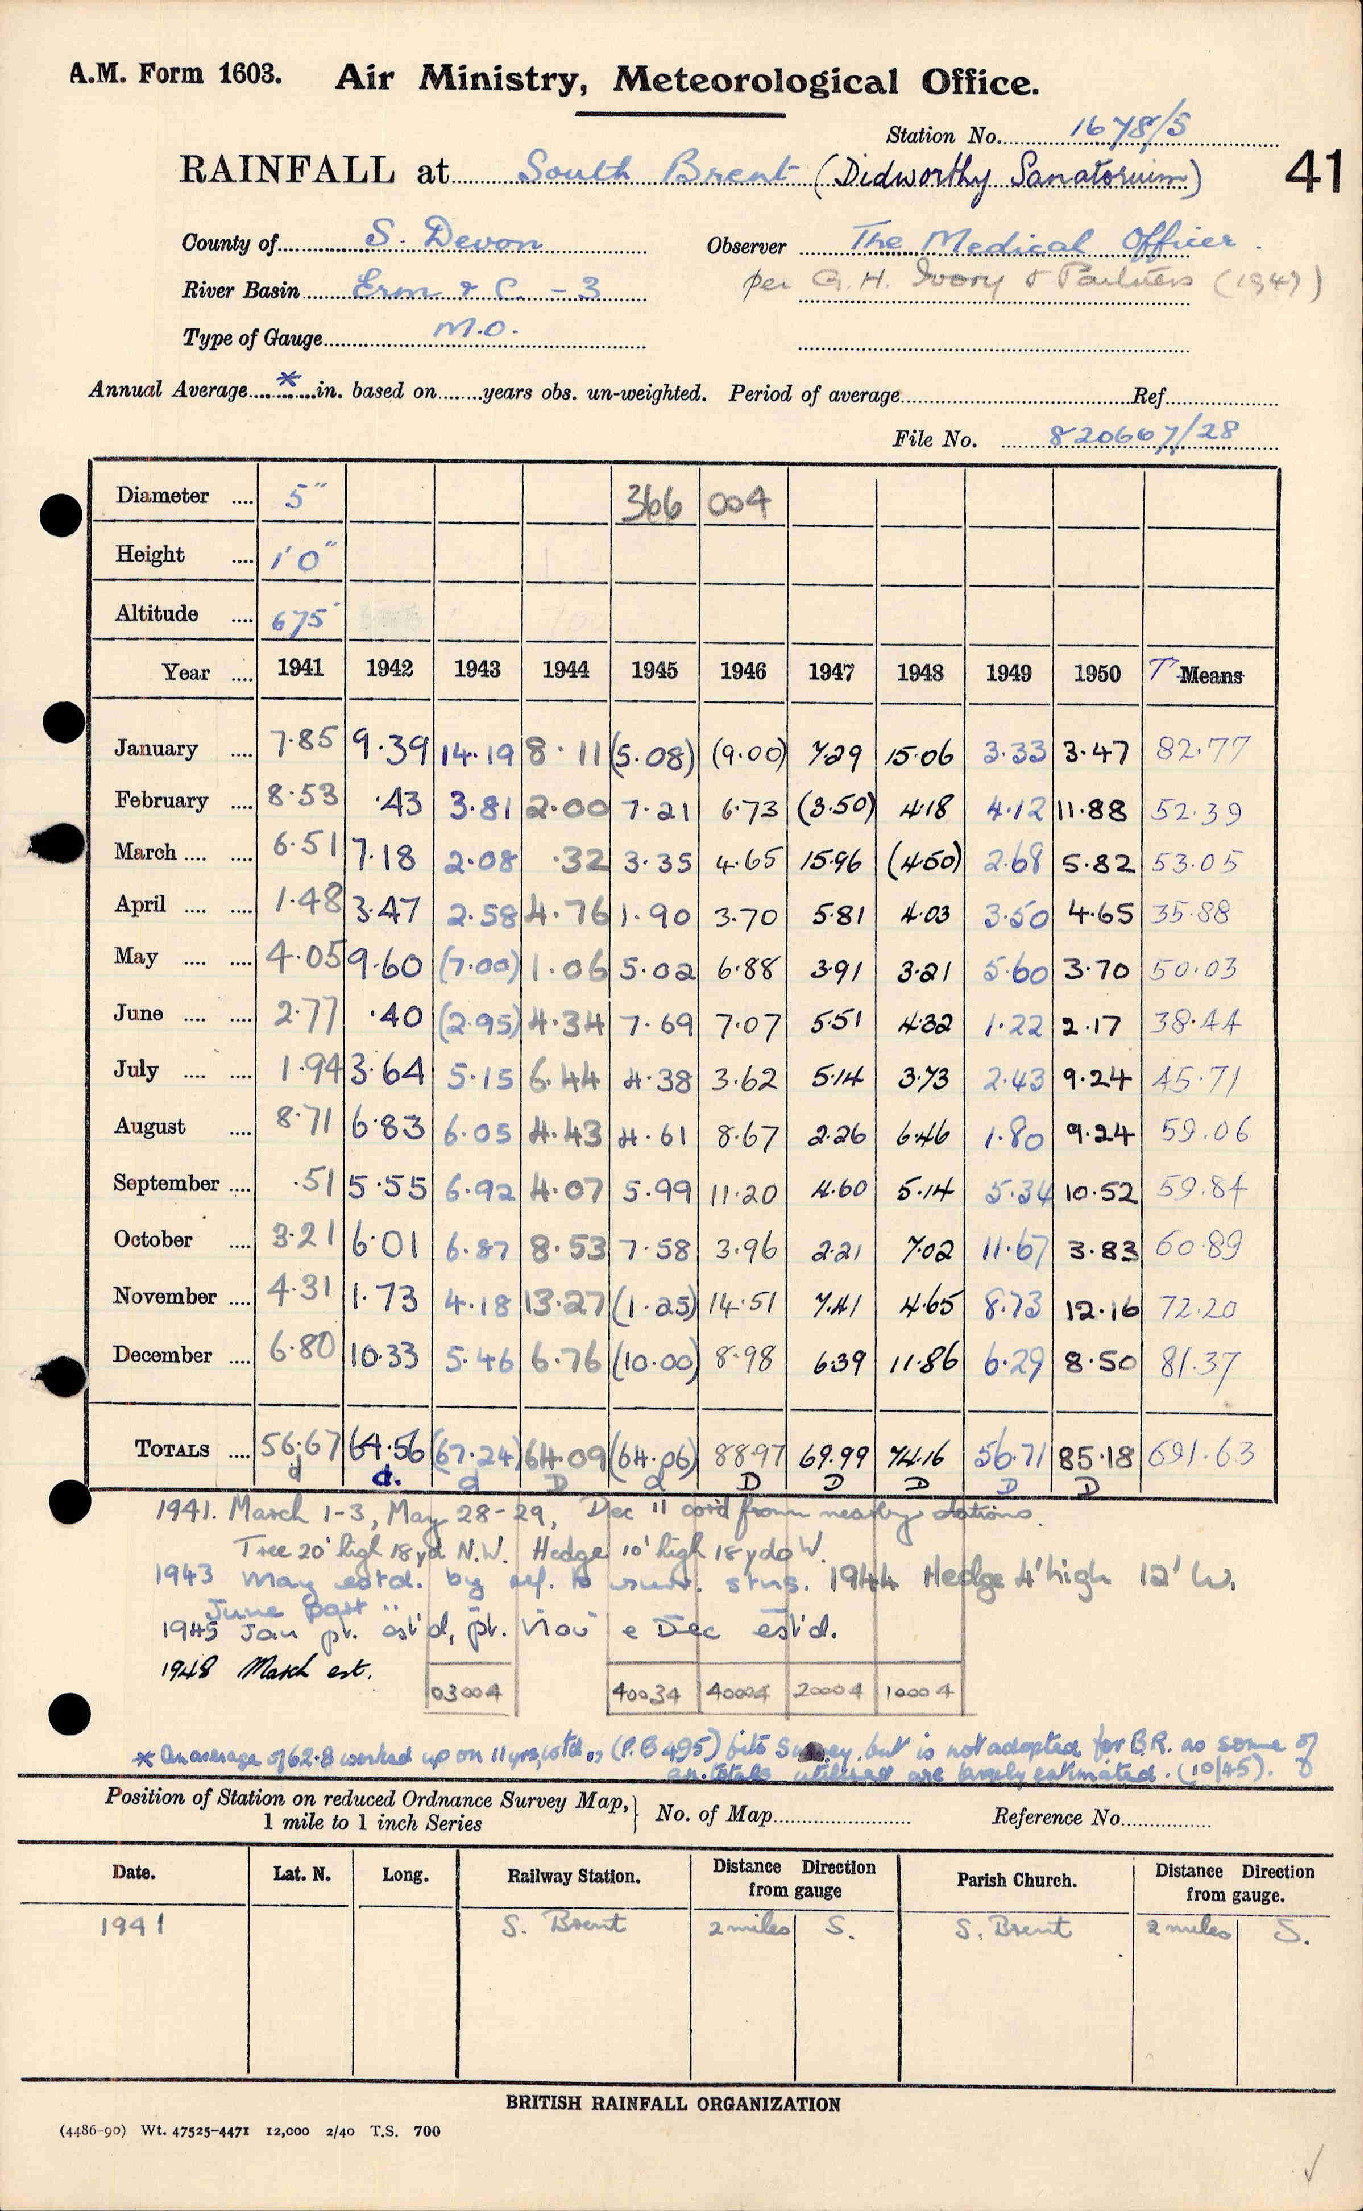 A.M. Form 1603. Air Ministry, Meteorological Office.
Station No. 1678/5
RAINFALL at South Brent (Didworthy Sanatorium) 41
County of S. Devon Observer The Medical Officer.
River Basin Erm & C. - 3 per G. H. Ivory & Partners (1947)
Type of Gauge M.O.
Annual Average * in. based on years obs. un-weighted. Period of average Ref.
File No. 820667/28
Diameter 5" 366 004
Height 1'0"
Altitude 675'
Year 1941 1942 1943 1944 1945 1946 1947 1948 1949 1950 T Means
January 7.85 9.39 14.19 8.11 (5.08) (9.00) 7.29 15.06 3.33 3.47 82.77
February 8.53 .43 3.81 2.00 7.21 6.73 (3.50) 4.18 4.12 11.88 52.39
March 6.51 7.18 2.08 .32 3.35 4.65 15.96 (4.50) 2.68 5.82 53.05
April 1.48 3.47 2.58 4.76 1.90 3.70 5.81 4.03 3.50 4.65 35.88
May 4.05 9.60 (7.00) 1.06 5.02 6.88 3.91 3.21 5.60 3.70 50.03
June 2.77 .40 (2.95) 4.34 7.69 7.07 5.51 4.32 1.22 2.17 38.44
July 1.94 3.64 5.15 6.44 4.38 3.62 5.14 3.73 2.43 9.24 45.71
August 8.71 6.83 6.05 4.43 4.61 8.67 2.26 6.46 1.80 9.24 59.06
September .51 5.55 6.92 4.07 5.99 11.20 4.60 5.14 5.34 10.52 59.84
October 3.21 6.01 6.87 8.53 7.58 3.96 2.21 7.02 11.67 3.83 60.89
November 4.31 1.73 4.18 13.27 (1.25) 14.51 7.41 4.65 8.73 12.16 72.20
December 6.80 10.33 5.46 6.76 (10.00) 8.98 6.39 11.86 6.29 8.50 81.37
TOTALS 56.67 64.56 (67.24) 64.09 (64.06) 88.97 69.99 74.16 56.71 85.18 691.63
d d. d D d D D D D D
1941. March 1-3, May 28-29, Dec 11 cor'd from nearby stations.
Tree 20' high 18 yd N.W. Hedge 10' high 18 yds W.
1943 May estd. by ref. to surr. stns. 1944 Hedge 4' high 12' W.
June part "
1945 Jan pt. est'd, pt. Nov e Dec est'd.
1948 March est.
03004 40034 40004 20004 10004
* An average of 62.8 worked up on 11 yrs, (P.B 495) fits Survey, but is not adopted for B.R. as some of
an. totals utilised are largely estimated. (10/45).
Position of Station on reduced Ordnance Survey Map, 1 mile to 1 inch Series No. of Map Reference No.
Date. Lat. N. Long. Railway Station. Distance Direction from gauge Parish Church. Distance Direction from gauge.
1941 S. Brent 2 miles S. S. Brent 2 miles S.
BRITISH RAINFALL ORGANIZATION
(4486-90) Wt. 47525-4471 12,000 2/40 T.S. 700